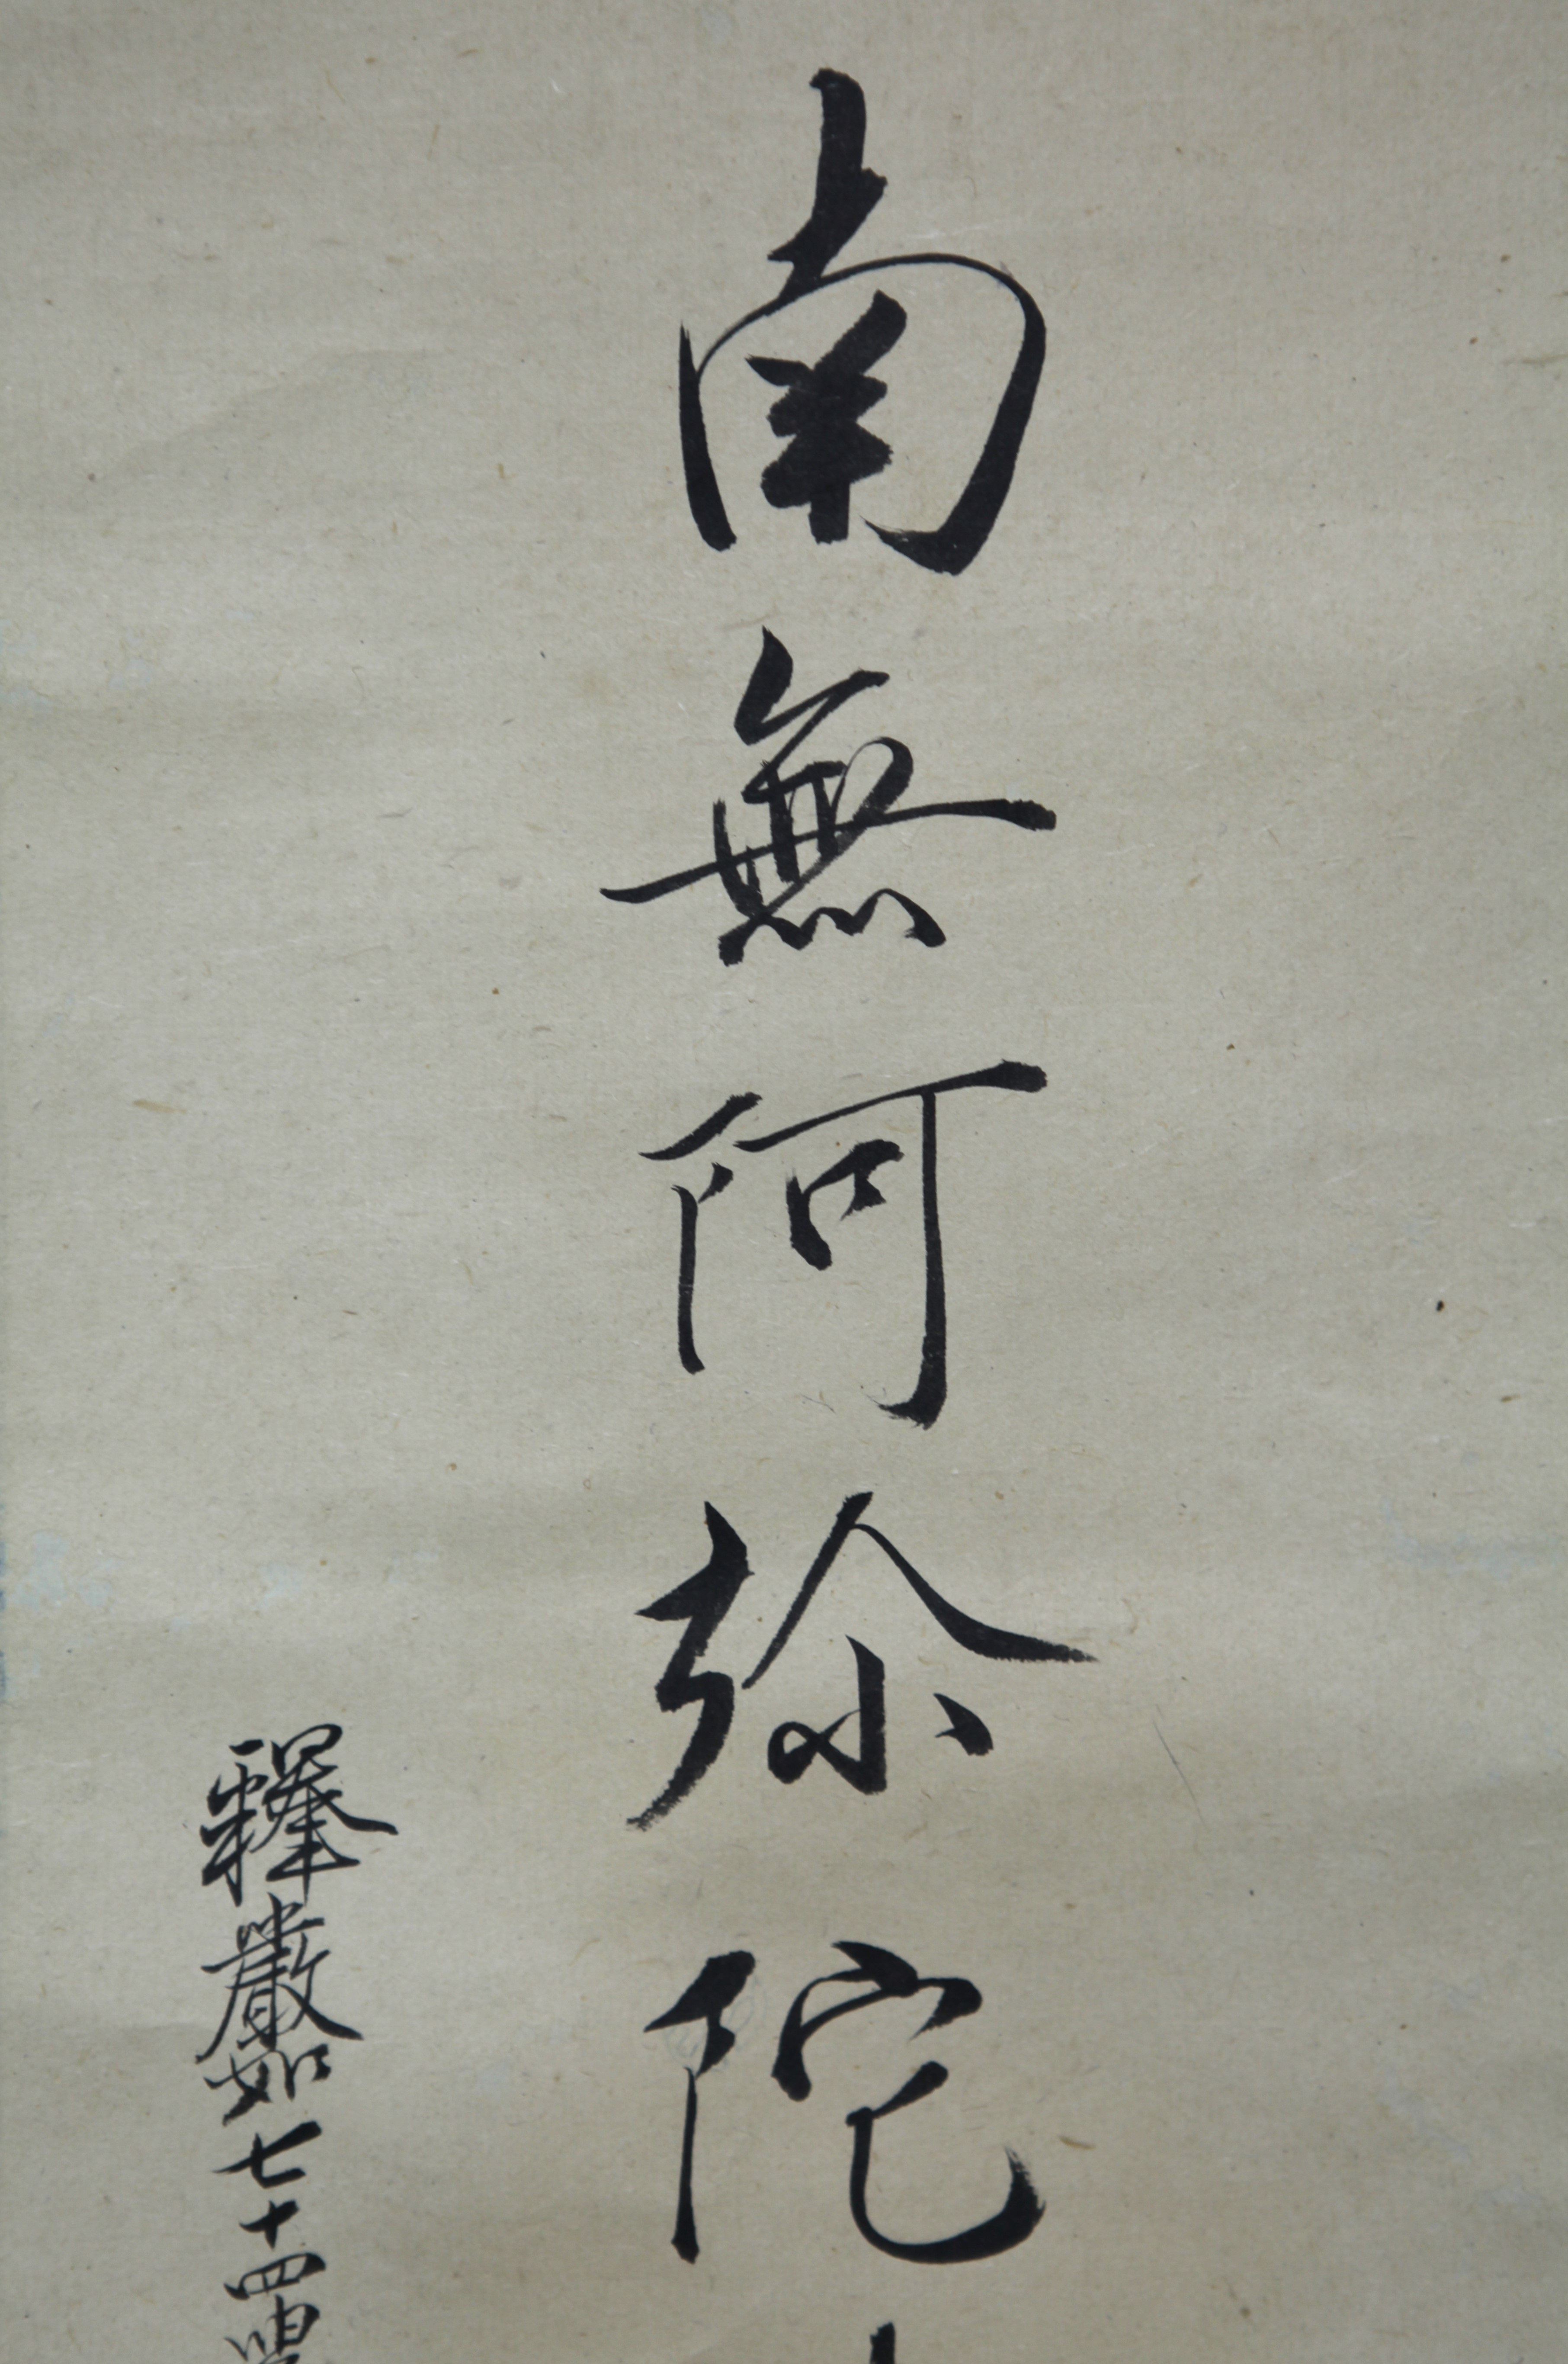 南無阿弥陀
釋嚴如七十四